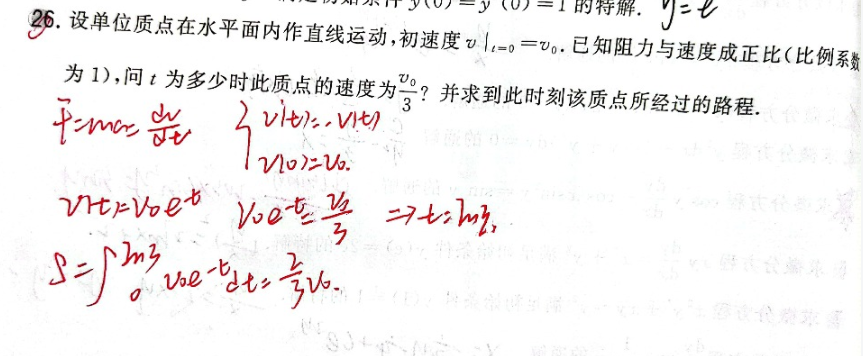 的特解. y=e
26. 设单位质点在水平面内作直线运动,初速度 v|ₜ₌₀=v₀. 已知阻力与速度成正比(比例系数
为 1),问 t 为多少时此质点的速度为 v₀/3? 并求到此时刻该质点所经过的路程.
F=ma=dv/dt { v'(t)=-v(t)
v(0)=v₀.
v(t)=v₀e^-t v₀e^-t=v₀/3 ⇒t=ln3.
S=∫₀^ln3 v₀e^-t dt=2/3 v₀.